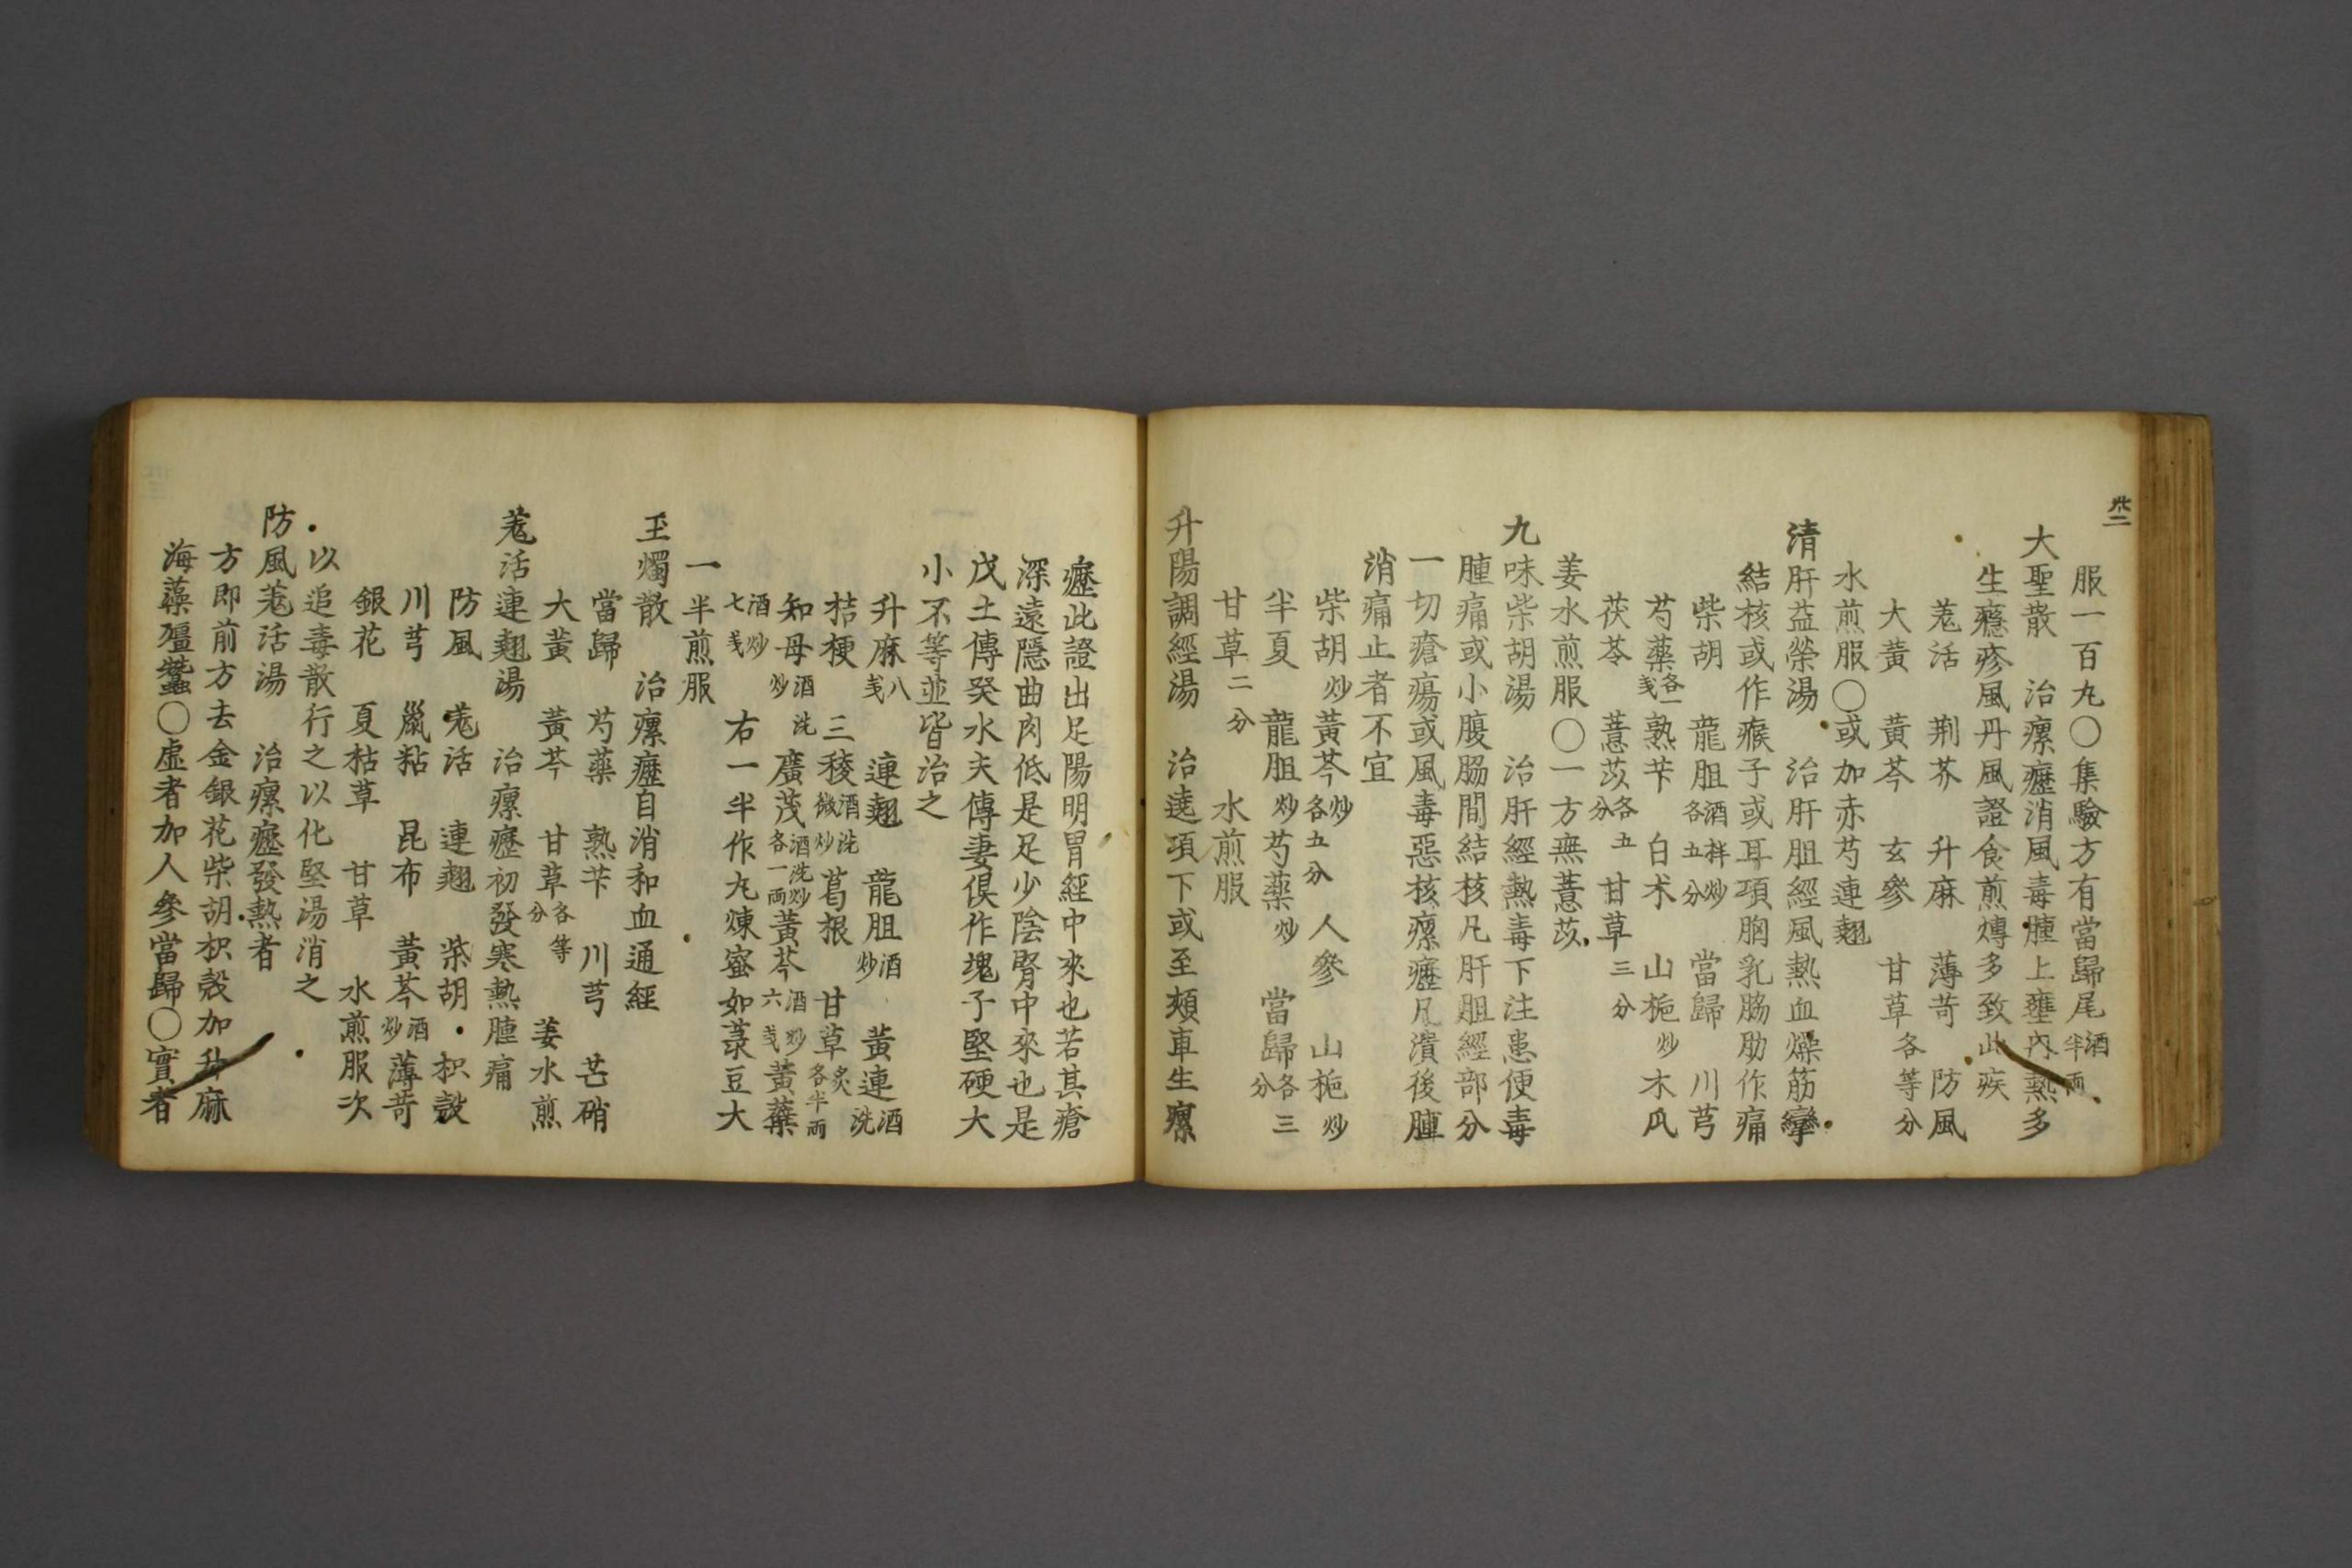 卅二
服一百丸〇集驗方有當歸尾酒半兩
大聖散　治瘰癧消風毒腫上壅內熱多
生癮疹風丹風證食煎煿多致此疾
羌活　荆芥　升麻　薄苛　防風
大黃　黃芩　玄參　甘草各等分
水煎服〇或加赤芍連翹
清肝益榮湯　治肝胆經風熱血燥筋攣
結核或作瘊子或耳項胸乳脇肋作痛
柴胡　龍胆酒拌炒各五分　當歸　川芎
芍藥各一戔　熟芐　白朮　山梔炒　木瓜
茯苓　薏苡各五分　甘草三分
姜水煎服〇一方無薏苡
九味柴胡湯　治肝經熱毒下注患便毒
腫痛或小腹脇間結核凡肝胆經部分
一切瘡瘍或風毒惡核瘰癧凡潰後腫
消痛止者不宜
柴胡炒　黃芩炒各五分　人參　山梔炒
半夏　龍胆炒　芍藥炒　當歸各三分
甘草二分　水煎服
升陽調經湯　治遶項下或至頰車生瘰
癧此證出足陽明胃經中來也若其瘡
深遠隱曲肉低是足少陰腎中來也是
戊土傳癸水夫傳妻俱作塊子堅硬大
小不等並皆治之
升麻八戔　連翹　龍胆酒炒　黃連酒洗
桔梗　三稜酒洗微炒　葛根　甘草炙各半兩
知母酒洗炒　廣茂酒洗炒各一兩　黃芩酒炒六戔　黃蘗
酒炒七戔　右一半作丸煉蜜如菉豆大
一半煎服
玉燭散　治瘰癧自消和血通經
當歸　芍藥　熟芐　川芎　芒硝
大黃　黃芩　甘草各等分　姜水煎
羌活連翹湯　治瘰癧初發寒熱腫痛
防風　羌活　連翹　柴胡　枳殼
川芎　鼠粘　昆布　黃芩酒炒　薄苛
銀花　夏枯草　甘草　水煎服次
以追毒散行之以化堅湯消之
防風羌活湯　治瘰癧發熱者
方即前方去金銀花柴胡枳殼加升麻
海藻殭蠶〇虛者加人參當歸〇實者